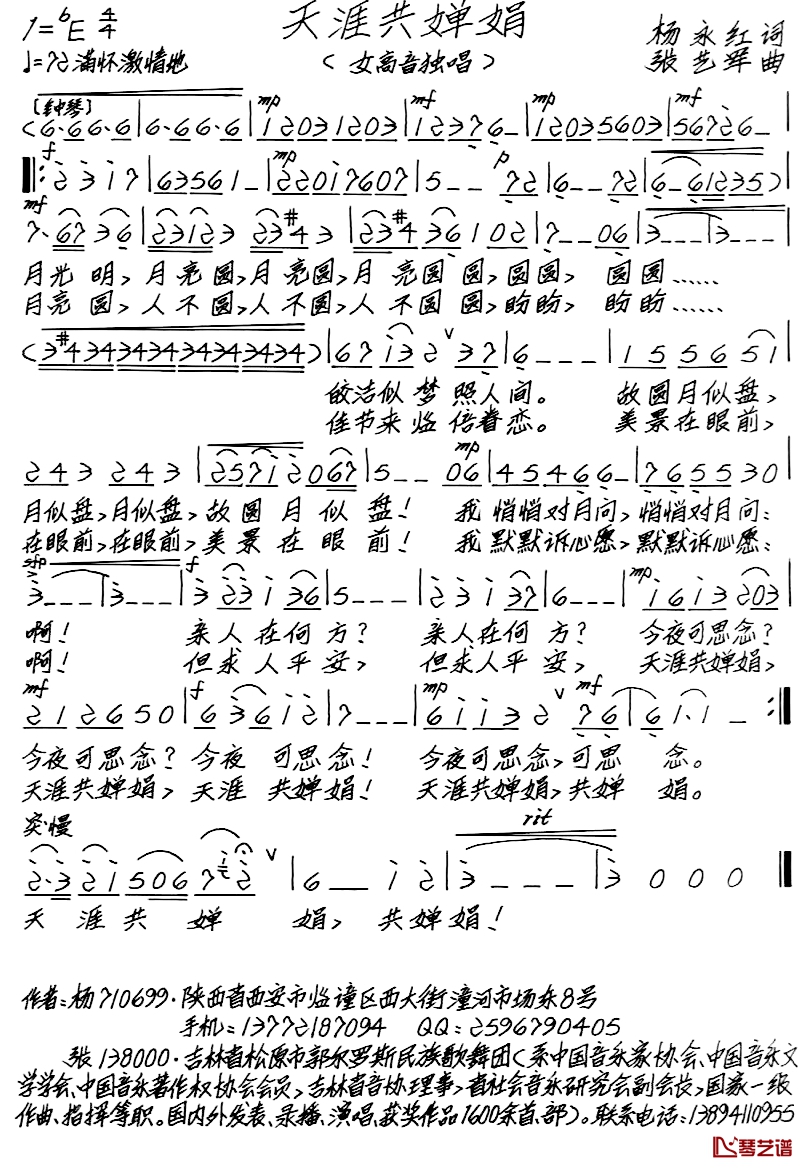 天涯共婵娟
1=♭E 4/4
杨永红词
♩=72 满怀激情地
（女高音独唱）
张艺军曲
〔钟琴〕 mp mf mp mf
(6·66·6|6·66·6|i203i203|i2376-|i2035603|56726-|
f mp p
‖:23i7|63561-|220i7607|5--72|6--72|6-61235)
mf
7·6736|231223 23#43|23#436102|7--06|3---|3---
月光明,月亮圆,月亮圆,月亮圆圆,圆圆,圆圆……
月亮圆,人不圆,人不圆,人不圆圆,盼盼,盼盼……
(3#43434343434343434)|67i32 ∨ 37|6---|155651|
皎洁似梦照人间。故圆月似盘,
佳节来临倍眷恋。美景在眼前,
mp
243 243|257i2067|5--06|45466-|765530
月似盘,月似盘,故圆月似盘!我悄悄对月问,悄悄对月问:
在眼前,在眼前,美景在眼前!我默默诉心愿,默默诉心愿:
sfp f mp
3---|3---|323i36|5---|23i37|6---|i6i3203|
啊!亲人在何方?亲人在何方?今夜可思念?
啊!但求人平安,但求人平安,天涯共婵娟,
mf f mp mf
212650|636i2|7---|6ii32 ∨ 76|61·1-:‖
今夜可思念?今夜可思念!今夜可思念,可思念。
天涯共婵娟,天涯共婵娟!天涯共婵娟,共婵娟。
突慢
rit
2·32i50672 ∨ |6--i2|3---|3000‖
天涯共婵娟,共婵娟!
作者:杨710699·陕西省西安市临潼区西大街潼河市场东8号
手机:13772187094 QQ:2596790405
张138000·吉林省松原市郭尔罗斯民族歌舞团(系中国音乐家协会、中国音乐文
学学会、中国音乐著作权协会会员,吉林省音协理事,省社会音乐研究会副会长,国家一级
作曲、指挥等职。国内外发表、录播、演唱、获奖作品1600余首、部)。联系电话:13894110955
琴艺谱